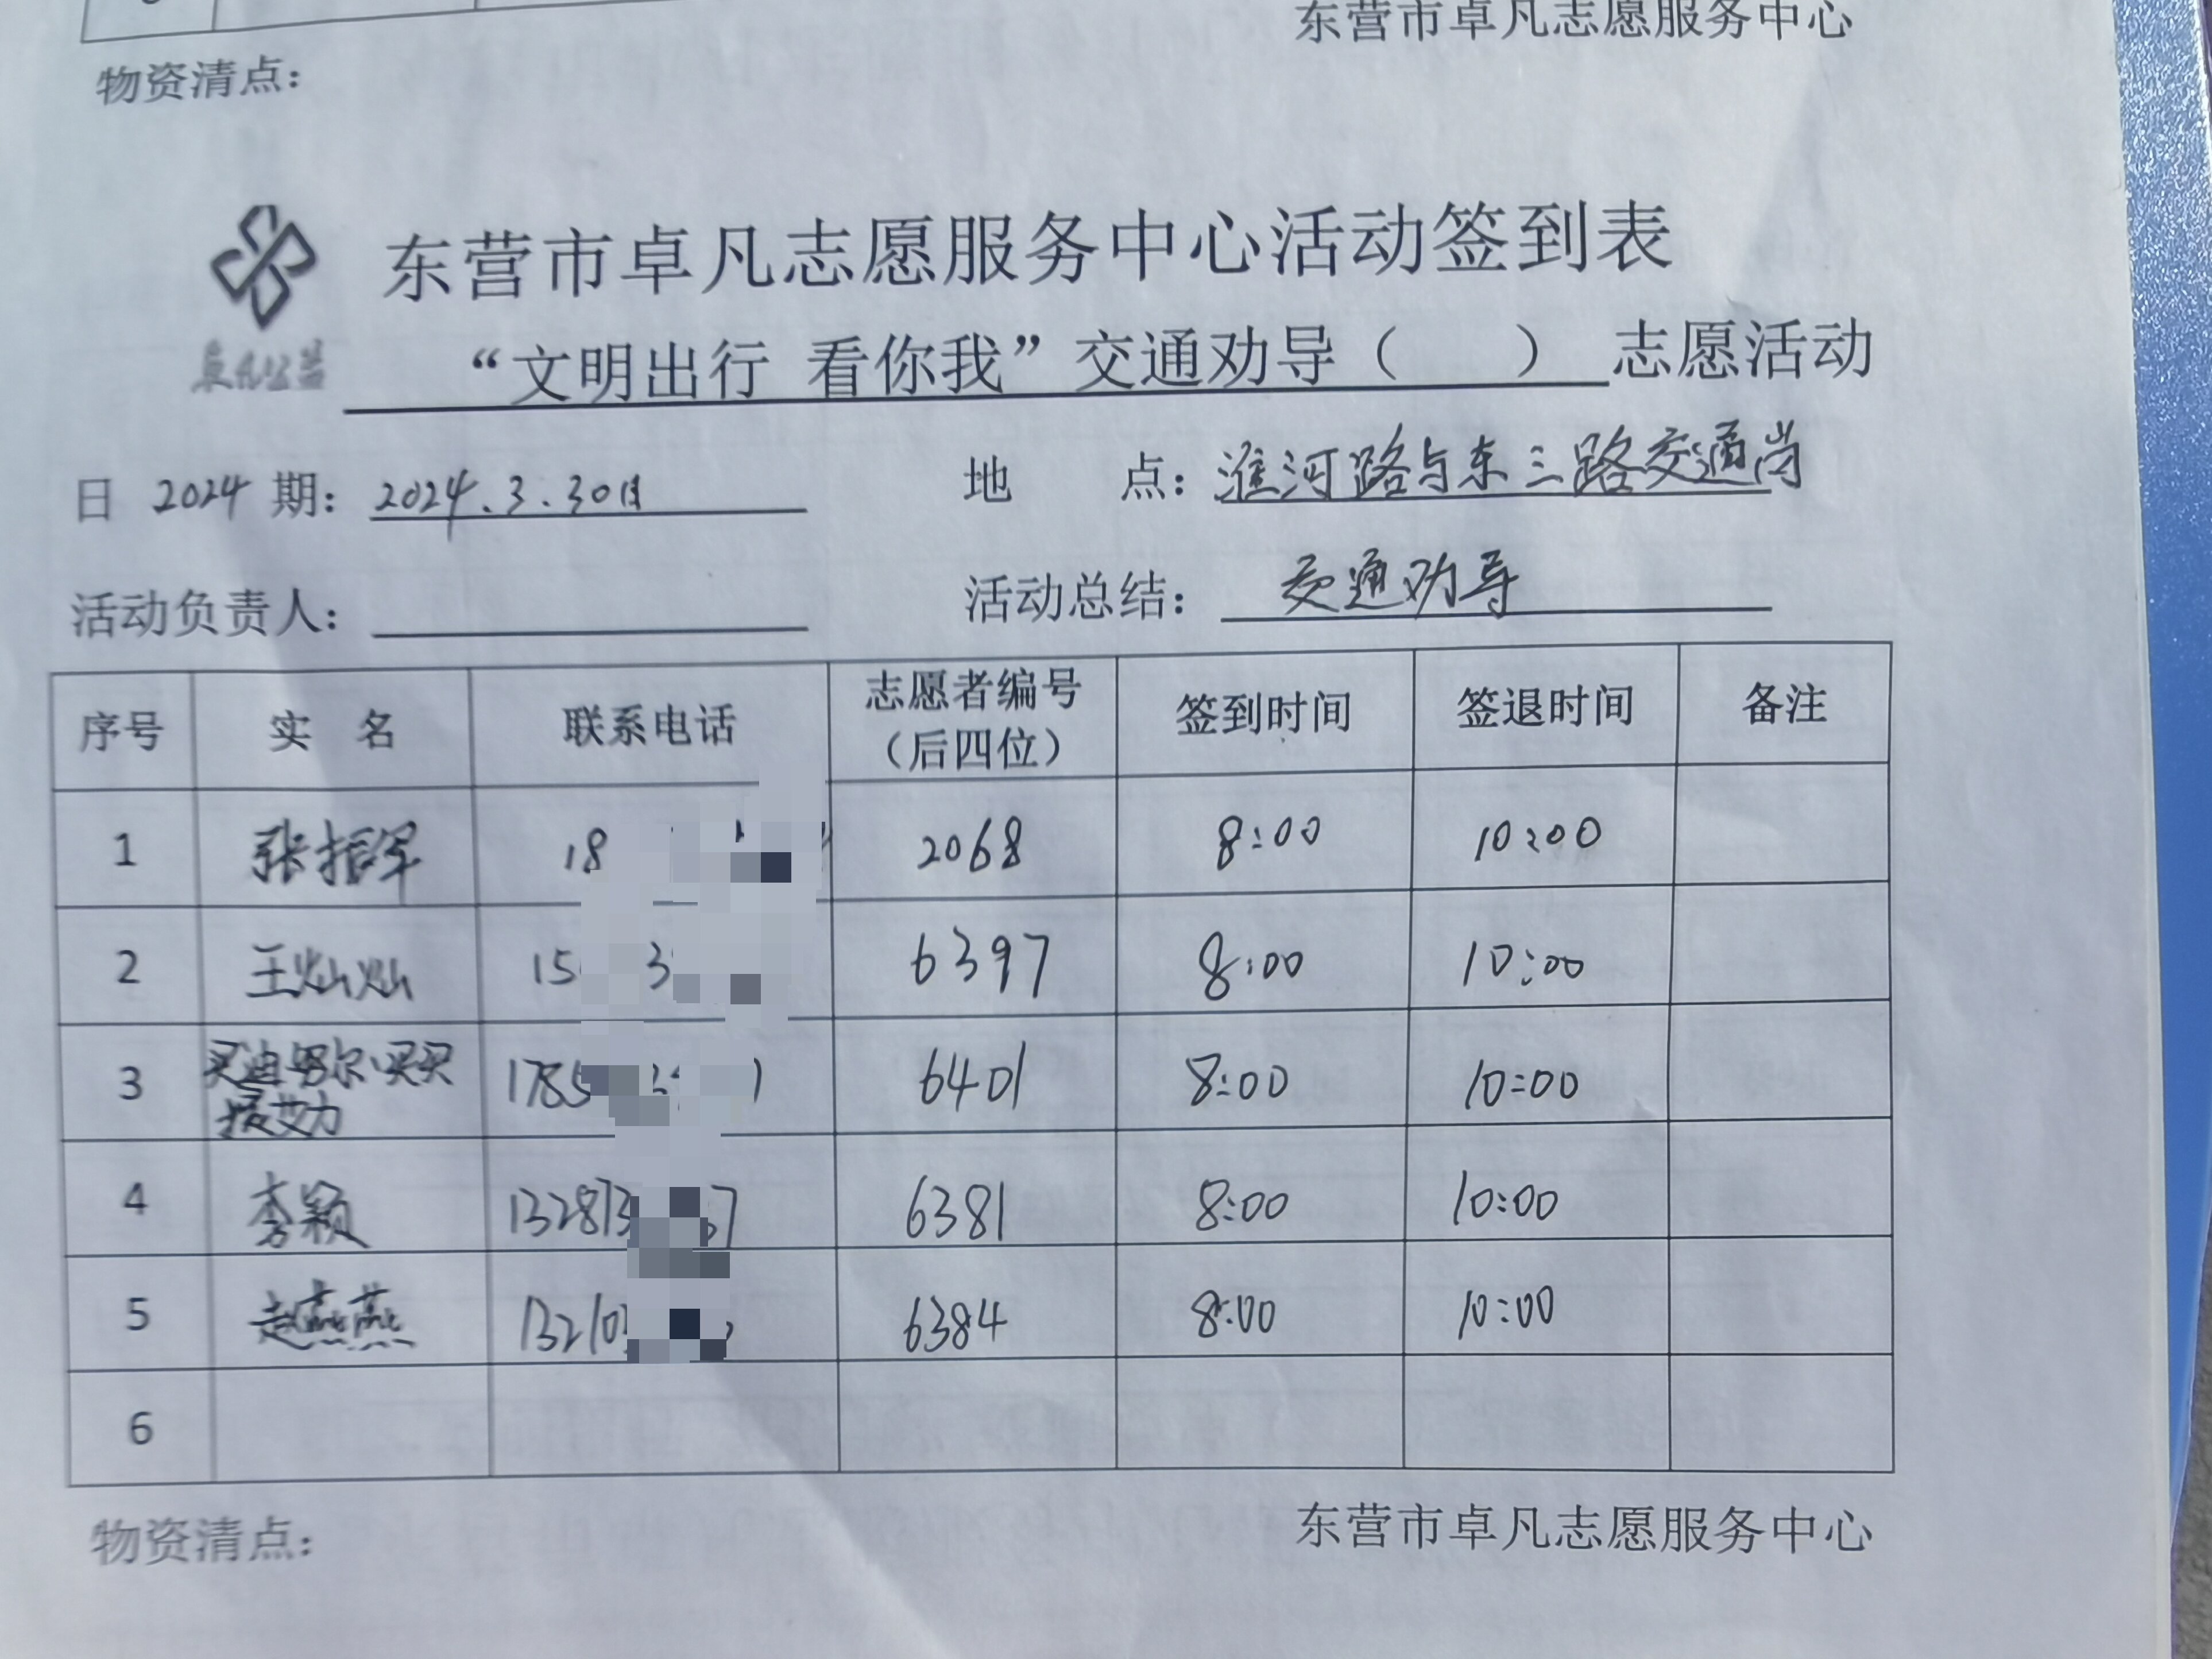 东营市卓凡志愿服务中心
物资清点：
东营市卓凡志愿服务中心活动签到表
“文明出行 看你我”交通劝导（ ）志愿活动
卓凡公益
日 2024 期：2024.3.30日 地 点：淮河路与东三路交通岗
活动负责人： 活动总结：交通劝导
序号 实 名 联系电话 志愿者编号（后四位） 签到时间 签退时间 备注
1 张振军 18 2068 8:00 10:00
2 王灿灿 15 3 6397 8:00 10:00
3 买迪努尔·买买提艾力 1785 1 6401 8:00 10:00
4 李颖 132813 7 6381 8:00 10:00
5 赵燕燕 13210 6384 8:00 10:00
6
物资清点： 东营市卓凡志愿服务中心